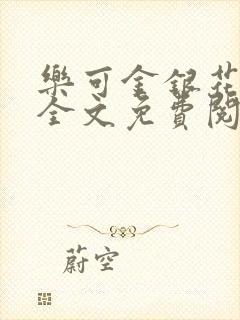 樂可金銀花
全文免費閱
蔚空